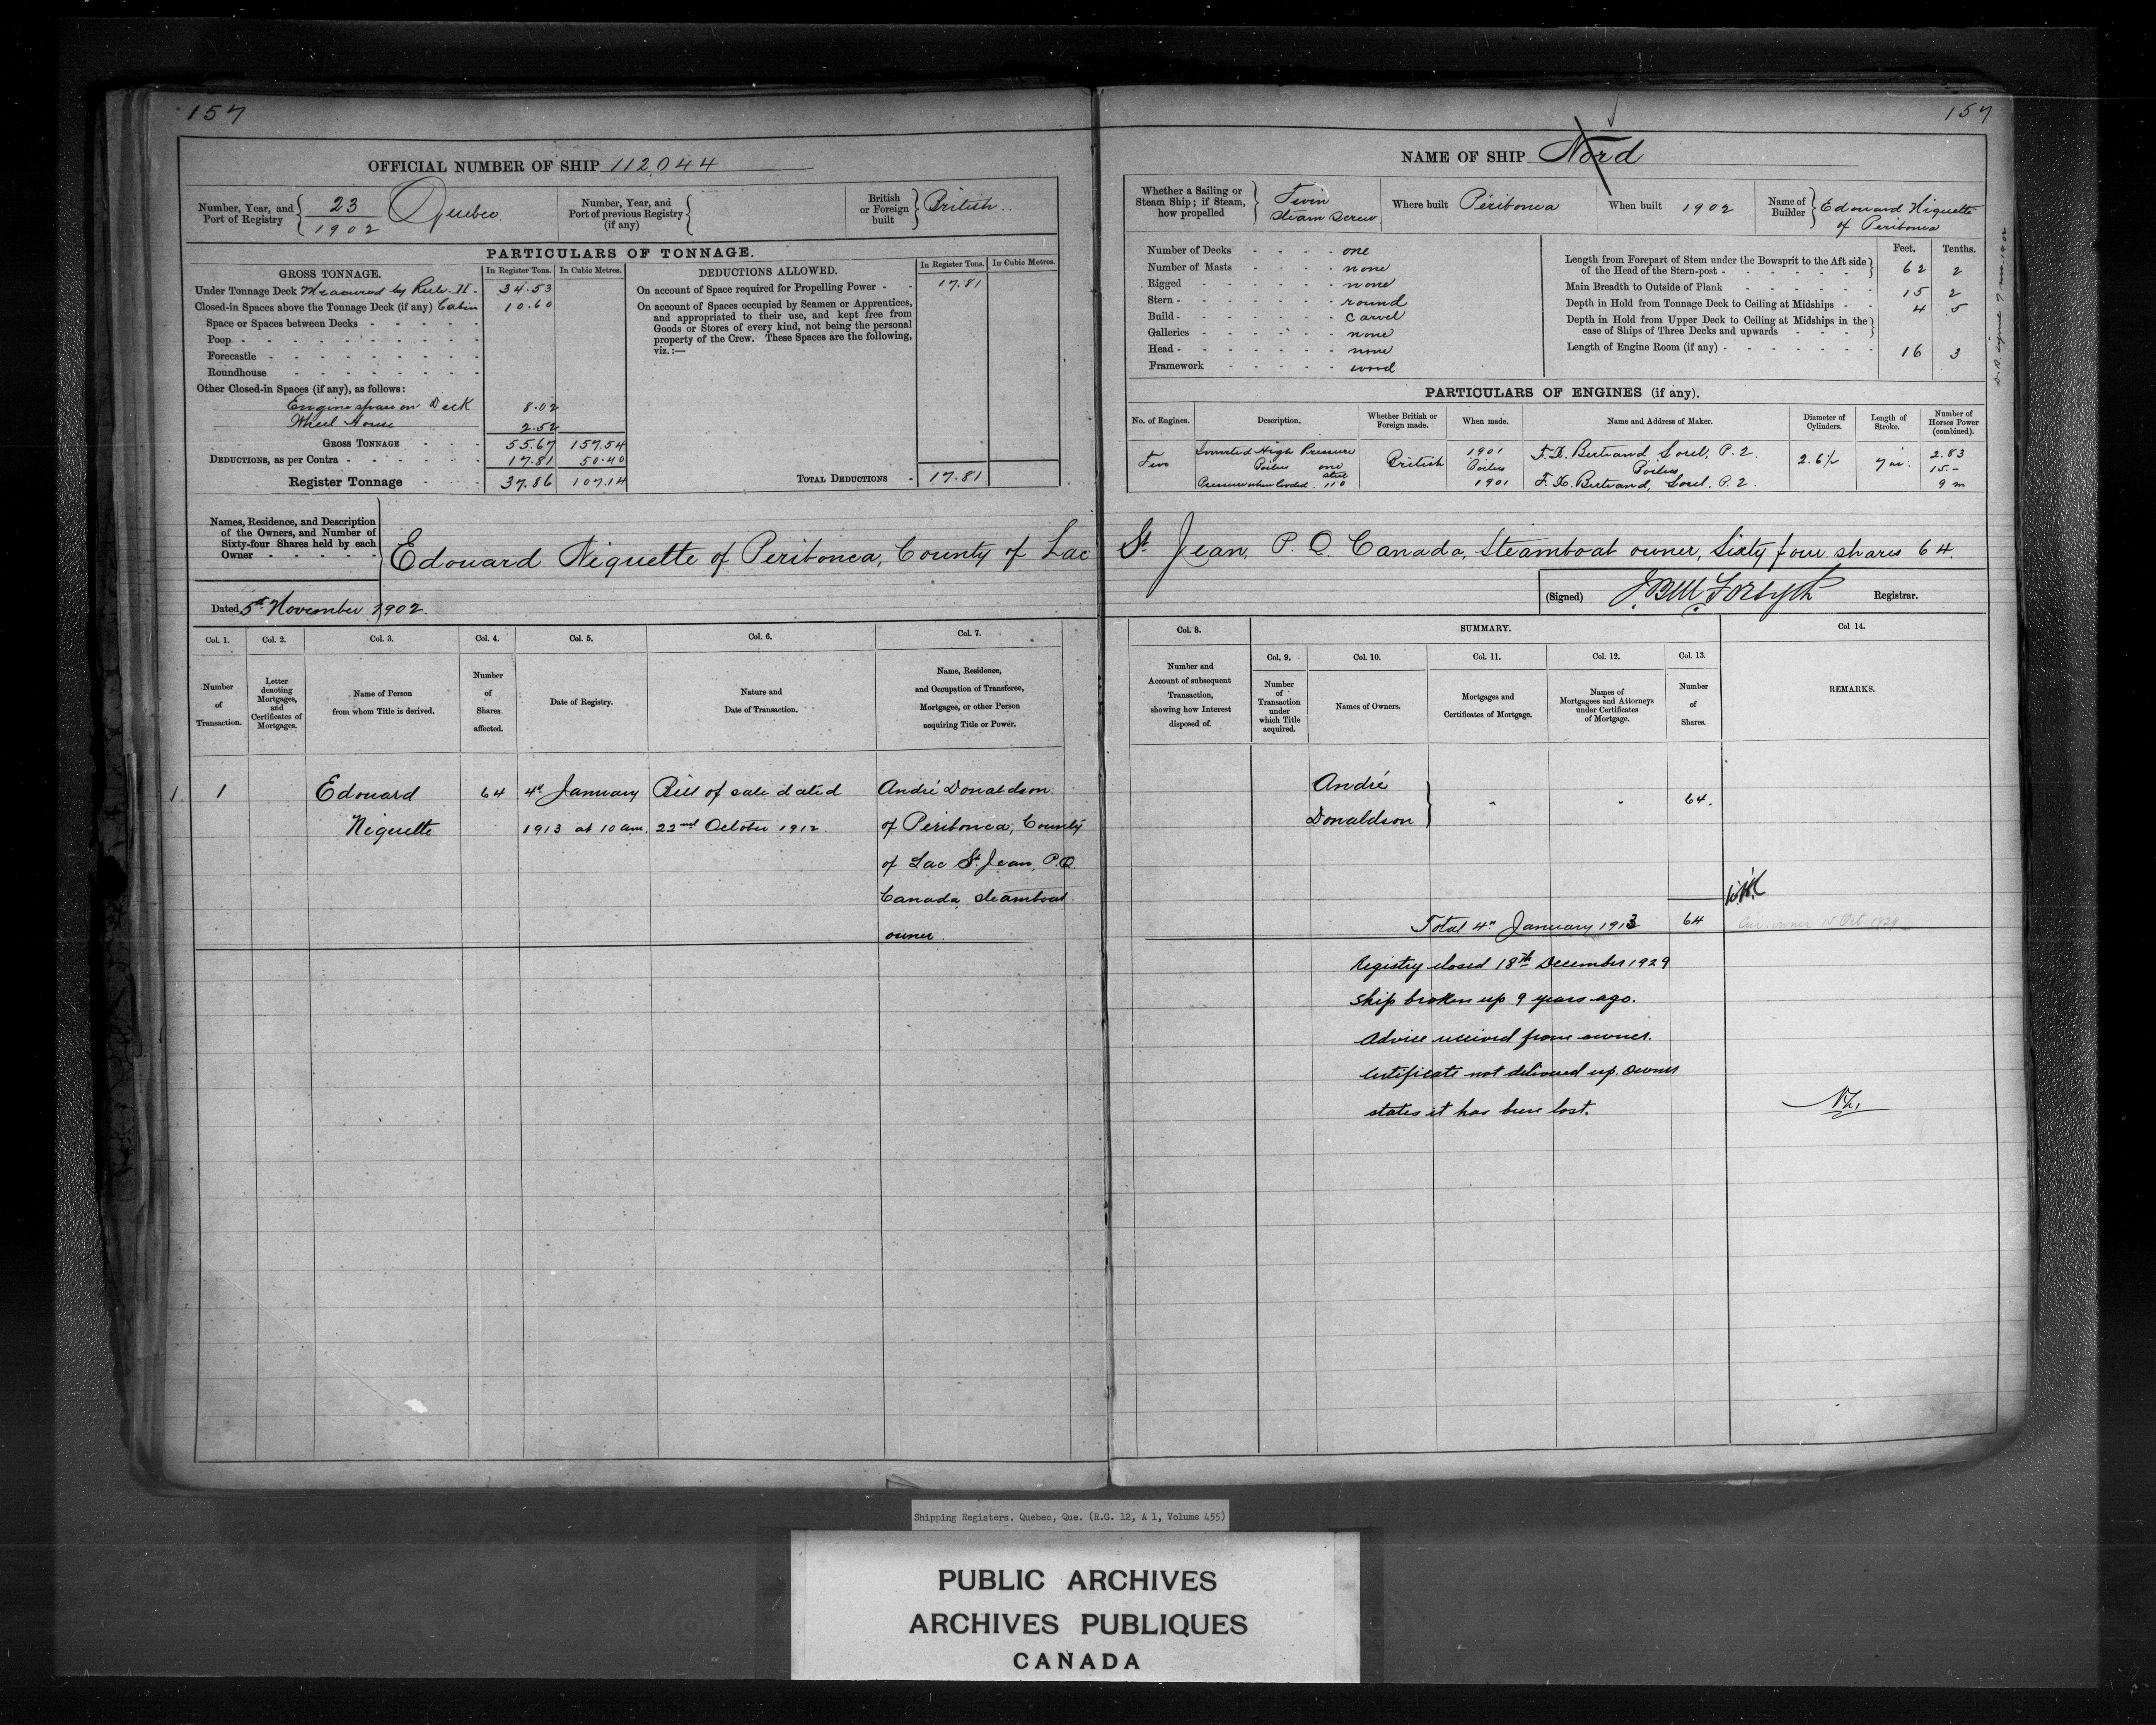 157
OFFICIAL NUMBER OF SHIP 112,044
Number, Year, and Port of Registry { 23 / 1902 Quebec.
Number, Year, and Port of previous Registry (if any) {
British or Foreign built } British.
PARTICULARS OF TONNAGE.
GROSS TONNAGE. In Register Tons. In Cubic Metres.
Under Tonnage Deck Measured by Rule II - 34.53
Closed-in Spaces above the Tonnage Deck (if any) Cabin 10.60
Space or Spaces between Decks - - - - -
Poop - - - - - - - -
Forecastle - - - - - - -
Roundhouse - - - - - -
Other Closed-in Spaces (if any), as follows:
Engine space on Deck 8.02
Wheel House 2.52
GROSS TONNAGE - - 55.67 157.54
DEDUCTIONS, as per Contra - - - - - 17.81 50.40
Register Tonnage - - 37.86 107.14
DEDUCTIONS ALLOWED. In Register Tons. In Cubic Metres.
On account of Space required for Propelling Power - - 17.81
On account of Spaces occupied by Seamen or Apprentices,
and appropriated to their use, and kept free from
Goods or Stores of every kind, not being the personal
property of the Crew. These Spaces are the following,
viz.:—
TOTAL DEDUCTIONS - 17.81
Names, Residence, and Description
of the Owners, and Number of
Sixty-four Shares held by each
Owner - - - - -
Edouard Niquette of Peribonca, County of Lac
Dated 5th November 1902.
Col. 1. Col. 2. Col. 3. Col. 4. Col. 5. Col. 6. Col. 7.
Number of Transaction.
Letter denoting Mortgages, and Certificates of Mortgages.
Name of Person from whom Title is derived.
Number of Shares affected.
Date of Registry.
Nature and Date of Transaction.
Name, Residence, and Occupation of Transferee, Mortgagee, or other Person acquiring Title or Power.
1 Edouard 64 4th January Bill of sale dated André Donaldson
Niquette 1913 at 10 am. 22nd October 1912. of Peribonca, County
of Lac St. Jean, P.Q.
Canada, steamboat
owner.
157
NAME OF SHIP Nord
Whether a Sailing or Steam Ship; if Steam, how propelled } Twin Steam Screw
Where built Péribonca
When built 1902
Name of Builder } Edouard Niquette of Peribonca
Number of Decks - - - - one
Number of Masts - - - - none
Rigged - - - - - none
Stern - - - - - - round
Build - - - - - - carvel
Galleries - - - - - none
Head - - - - - - none
Framework - - - - - wood
Feet. Tenths.
Length from Forepart of Stem under the Bowsprit to the Aft side
of the Head of the Stern-post - - - - - - 62 2
Main Breadth to Outside of Plank - - - - - 15 2
Depth in Hold from Tonnage Deck to Ceiling at Midships - - 4 5
Depth in Hold from Upper Deck to Ceiling at Midships in the
case of Ships of Three Decks and upwards - - - -
Length of Engine Room (if any) - - - - - - 16 3
PARTICULARS OF ENGINES (if any).
No. of Engines. Description. Whether British or Foreign made. When made. Name and Address of Maker. Diameter of Cylinders. Length of Stroke. Number of Horses Power (combined).
Two Inverted High Pressure British 1901 F. X. Bertrand Sorel, P. Q. 2.6½ 7 in. 2.83
Boilers one Boilers Boilers 15.-
Steel
Pressure when loaded. 110 1901 F. X. Bertrand, Sorel. P. Q. 9 m
St. Jean, P. Q. Canada, Steamboat owner, Sixty four shares 64.
(Signed) J. B. M. Forsyth Registrar.
Col. 8. SUMMARY. Col 14.
Col. 9. Col. 10. Col. 11. Col. 12. Col. 13.
Number and Account of subsequent Transaction, showing how Interest disposed of.
Number of Transaction under which Title acquired.
Names of Owners.
Mortgages and Certificates of Mortgage.
Names of Mortgagees and Attorneys under Certificates of Mortgage.
Number of Shares.
REMARKS.
André
Donaldson } " " 64.
Total 4th January 1913 64
owner 15 Oct 1929
Registry closed 18th December 1929
Ship broken up 9 years ago.
Advice received from owner.
Certificate not delivered up. Owner
states it has been lost.
Shipping Registers. Quebec, Que. (R.G. 12, A 1, Volume 455)
PUBLIC ARCHIVES
ARCHIVES PUBLIQUES
CANADA